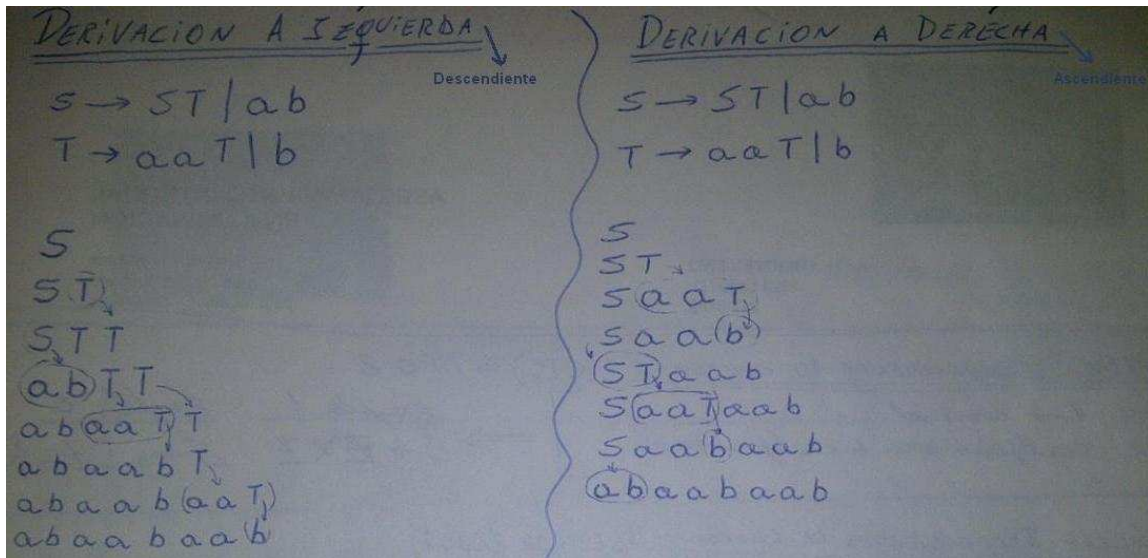 DERIVACION A IZQUIERDA
Descendiente
S → ST | ab
T → aaT | b
S
ST
STT
abTT
abaaTT
abaabT
abaabaaT
abaabaab
DERIVACION A DERECHA
Ascendiente
S → ST | ab
T → aaT | b
S
ST
SaaT
Saab
STaab
SaaTaab
Saabaab
abaabaab